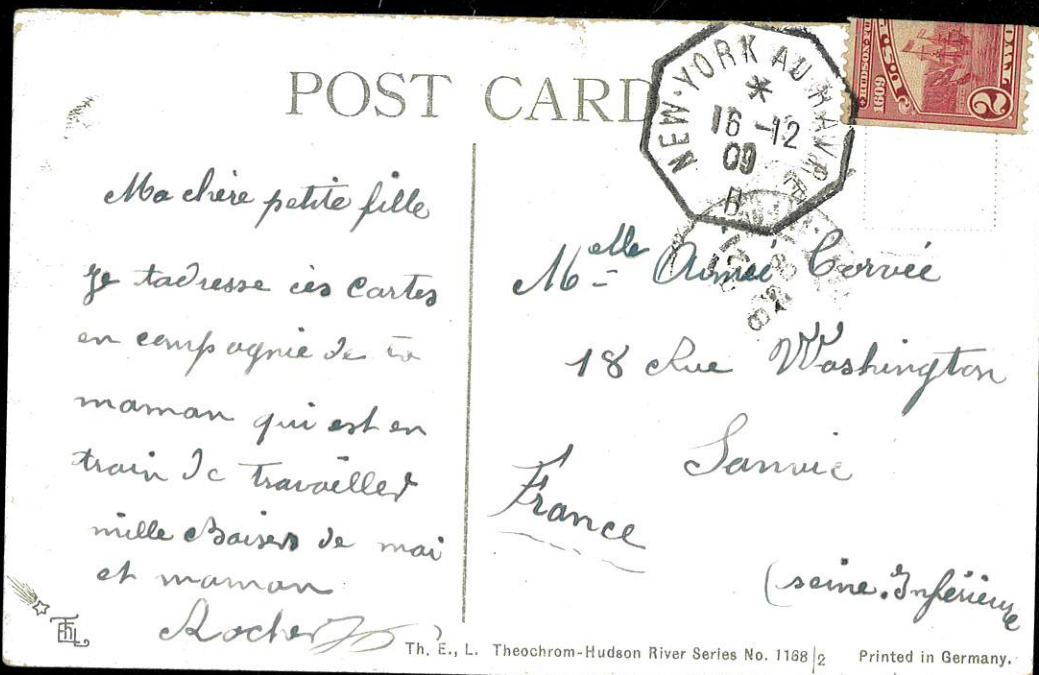 POST CARD
NEW-YORK AU HAVRE
16-12
09
B
HUDSON
1609
2
Ma chère petite fille
Je tadresse ces cartes
en compagnie de ta
maman qui est en
train de travailler
mille Baisers de moi
et maman
Rocher
Melle Aimée Corvée
18 Rue Washington
Sanvic
France
(seine.Inférieure
Th. E., L. Theochrom-Hudson River Series No. 1168/2 Printed in Germany.